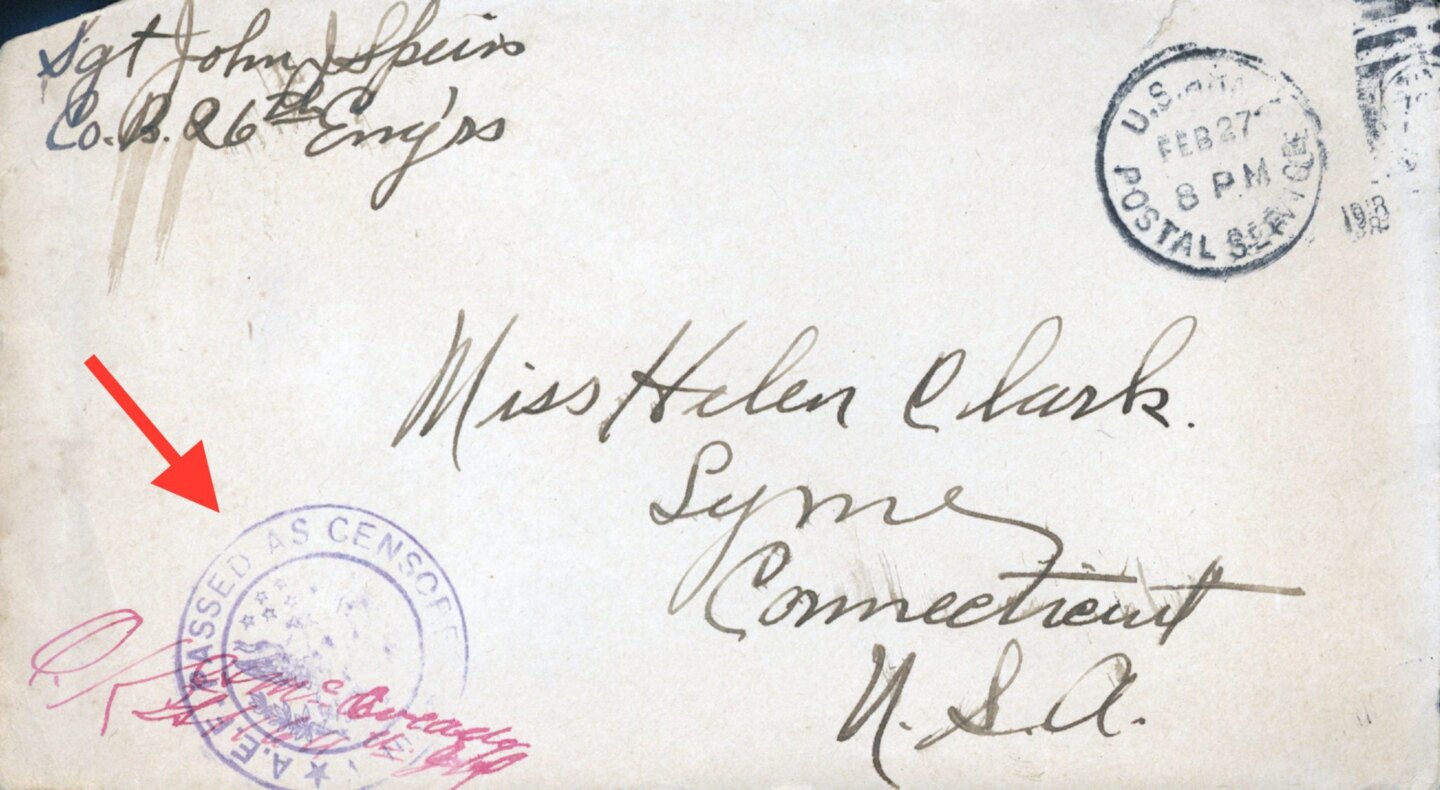 Sgt John J Speirs
Co. B. 26th Eng'rs
U.S.
POSTAL SERVICE
FEB 27
8 PM
1918
Miss Helen Clark.
Lyme
Connecticut
U.S.A.
A.E.F. PASSED AS CENSORED
OK